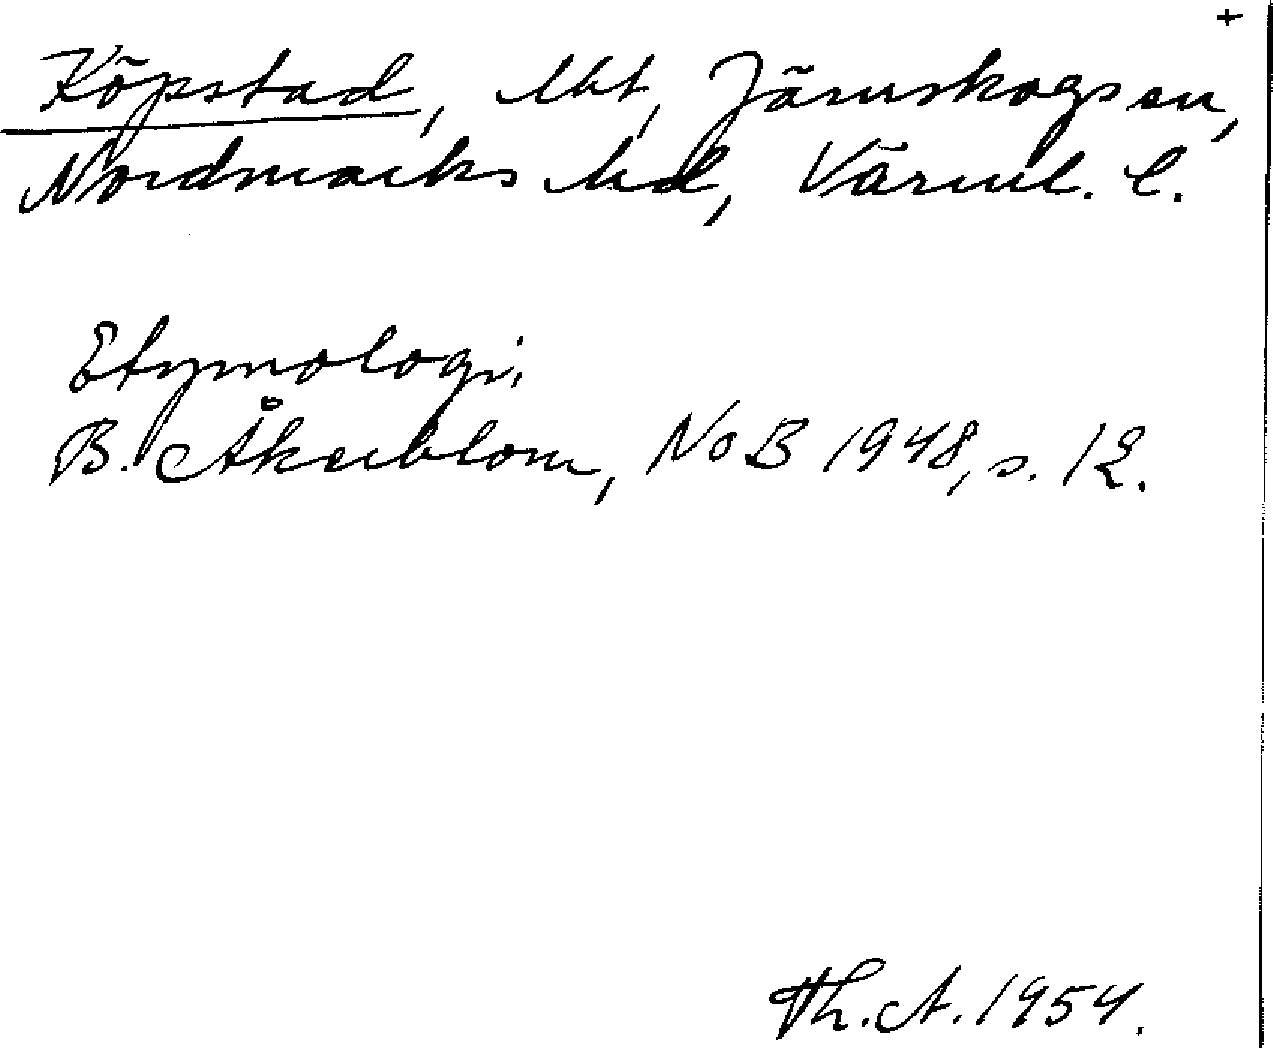 +
Köpstad, hbt, Järnskogs sn,
Nordmarks hd, Värml. l.
Etymologi,
B. Åkerblom, NoB 1948, s. 12.
Th. A. 1954.